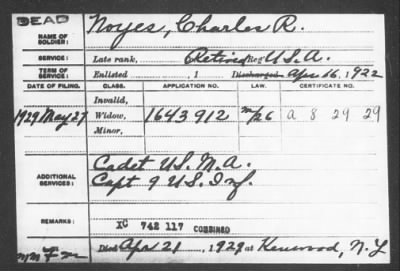 DEAD
NAME OF SOLDIER: Noyes, Charles R.
SERVICE: Late rank, Retired Reg U.S.A.
TERM OF SERVICE: Enlisted , 1 Discharged Apr 16, 1922
DATE OF FILING. CLASS. APPLICATION NO. LAW. CERTIFICATE NO.
Invalid,
1929 May 27 Widow, 1643912 m/26 a 8 29 29
Minor,
ADDITIONAL SERVICES: Cadet U.S.M.A.
Capt 9 U.S. Inf.
REMARKS: XC 742 117 COMBINED
Died Apr 21, 1929 at Kenwood, N.Y